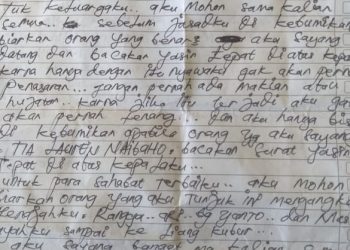 Tuk keluargaku.. aku Mohon sama kalian
Semua... sebelum Jasadku di kebumikan
biarkan orang yang benar2 aku sayang
datang dan bacakan yasin tepat di atas kepa
karna hanya dengan itu nyawaku gak akan pern
Penasaran.... jangan pernah ada makian atau
hujatan.. karna jika itu terjadi aku ga
akan pernah tenang... dan aku hanya bis
di kebumikan apabila orang yg aku sayan
TIA LAUREN NAIBAHO, bacakan surat yasin
tepat di atas kepalaku...
untuk para sahabat terbaikku.. aku Mohon
biarkan orang yang aku tunjuk ini mengangku
kerandaku.. Rangga.. yanto.. dan
sampai ke liang kubur...
aku sayang banget sama kalian